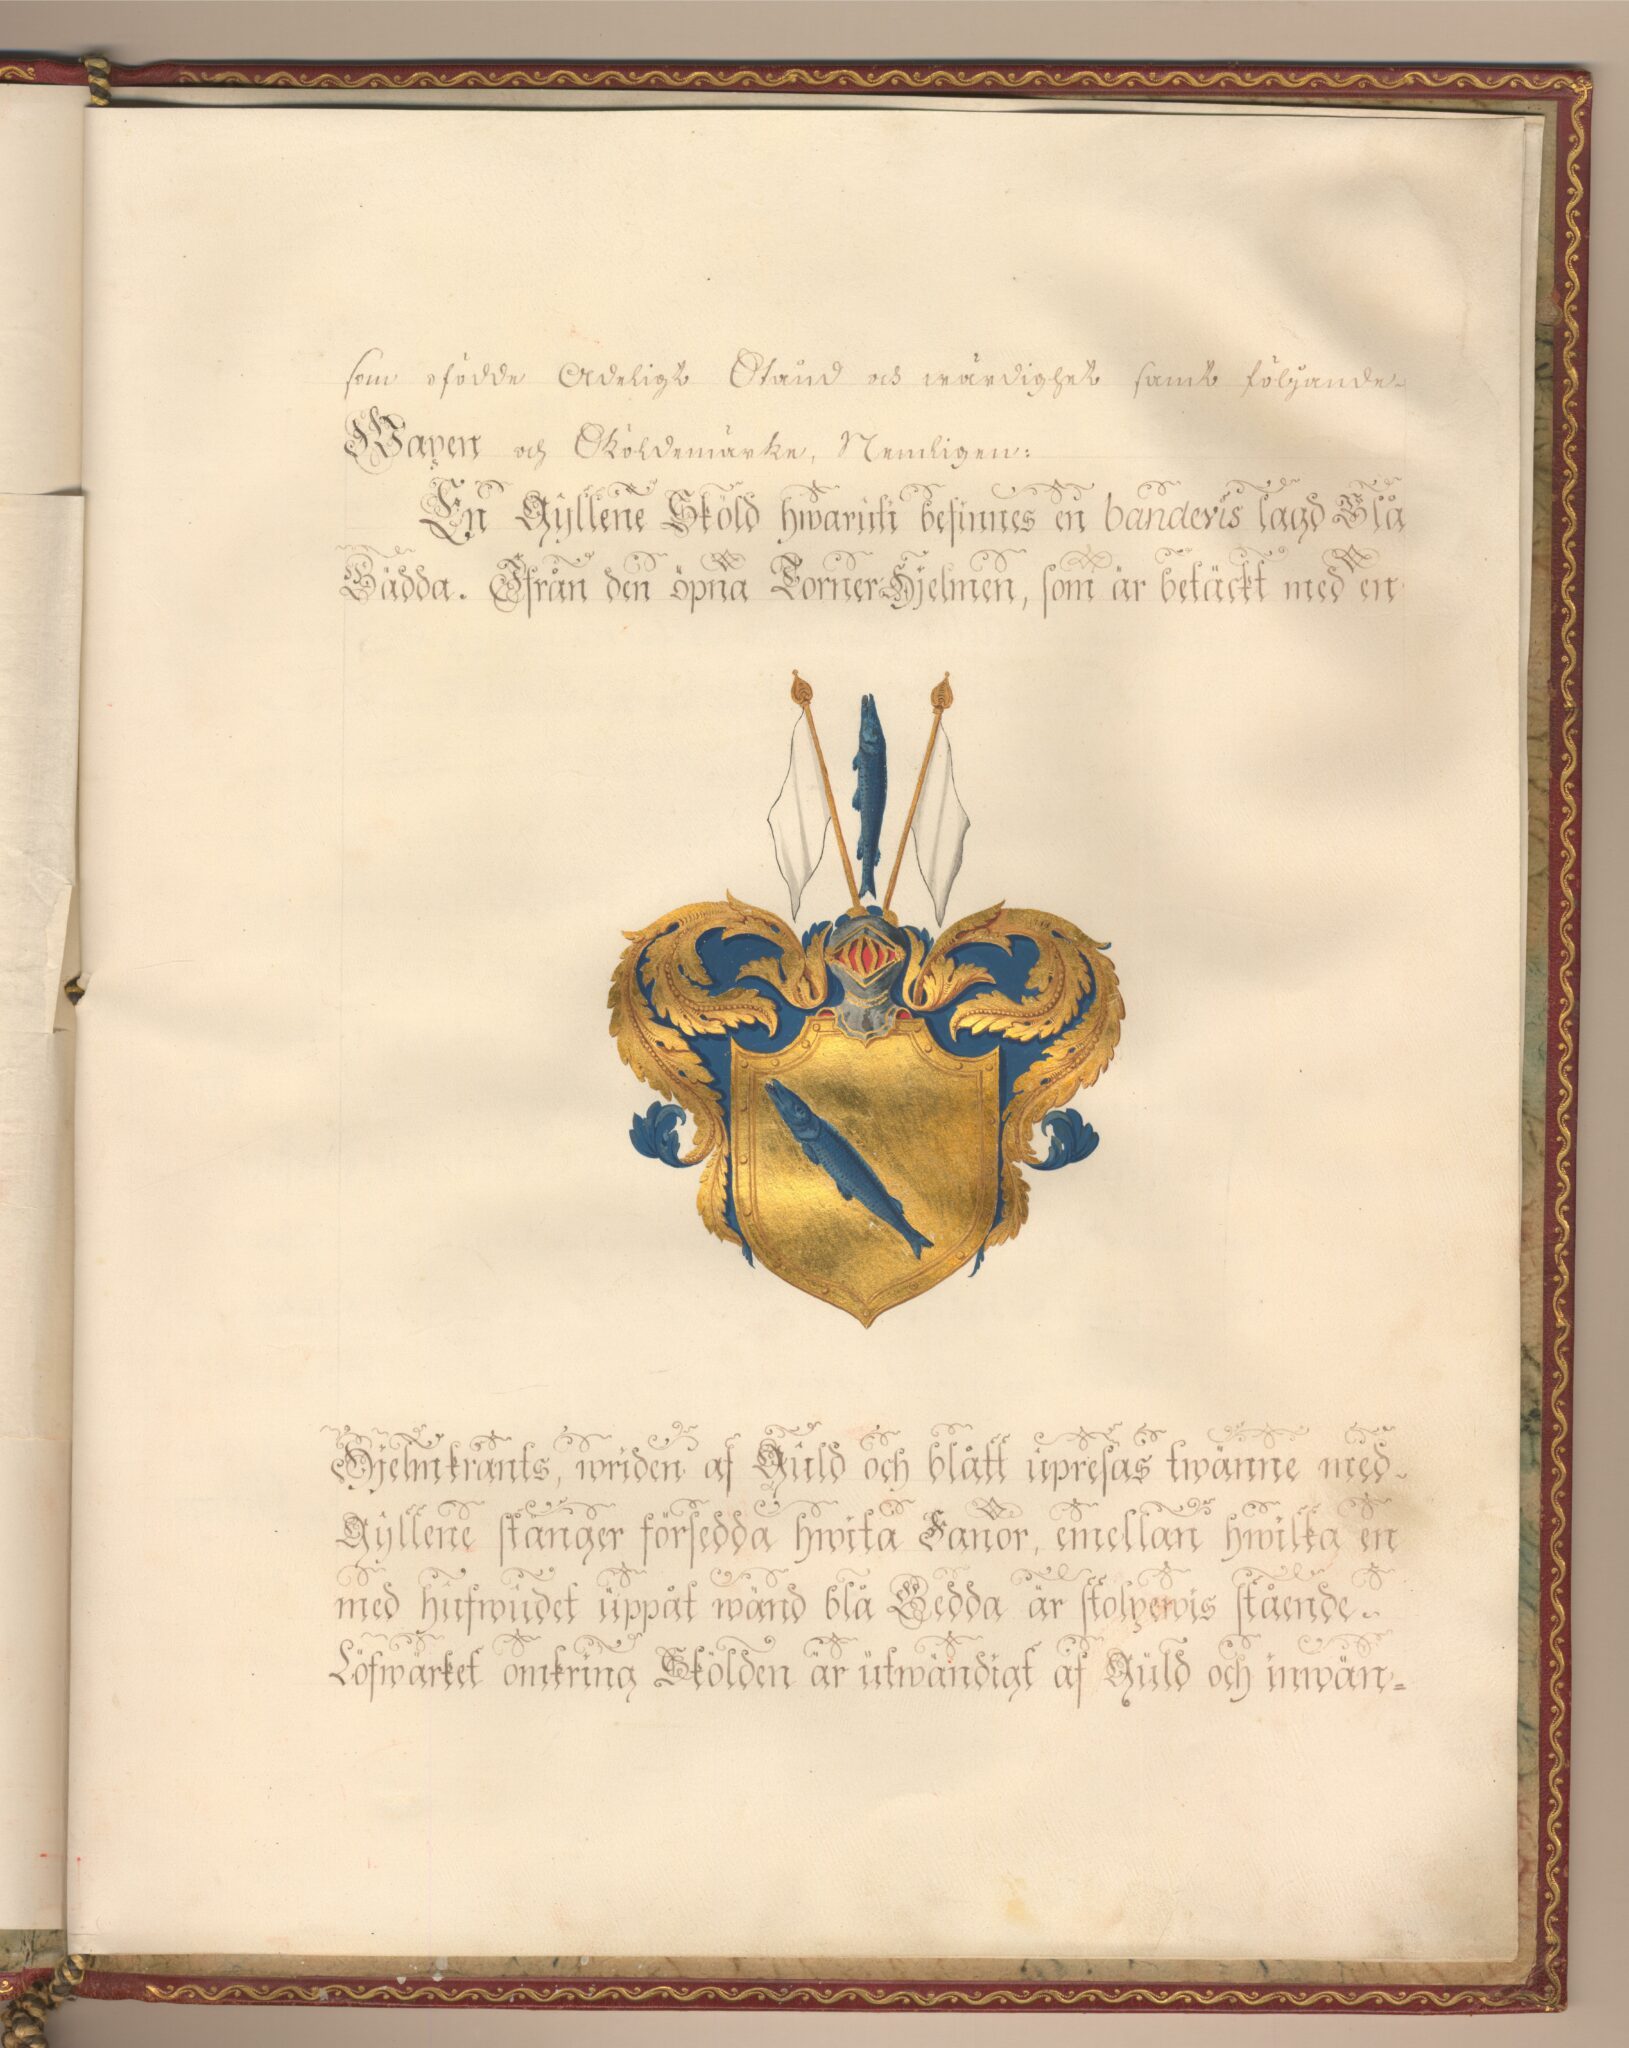 som ofödde Adeligt Stånd och wärdighet samt följande
Wapen och Sköldemärke, Nemligen:
En Gyllene Sköld hwaruti befinnes en banderis lagd Blå
Gädda. Ifrån den öpna Torner-Hjelmen, som är betäckt med en
Hjelmkrants, wriden af Guld och blått upresas twänne med
Gyllene stänger försedda hwita Fanor, emellan hwilka en
med hufwudet uppåt wänd blå Gedda är stolpewis stående.
Löfwärket omkring Skölden är utwändigt af Guld och inwän=